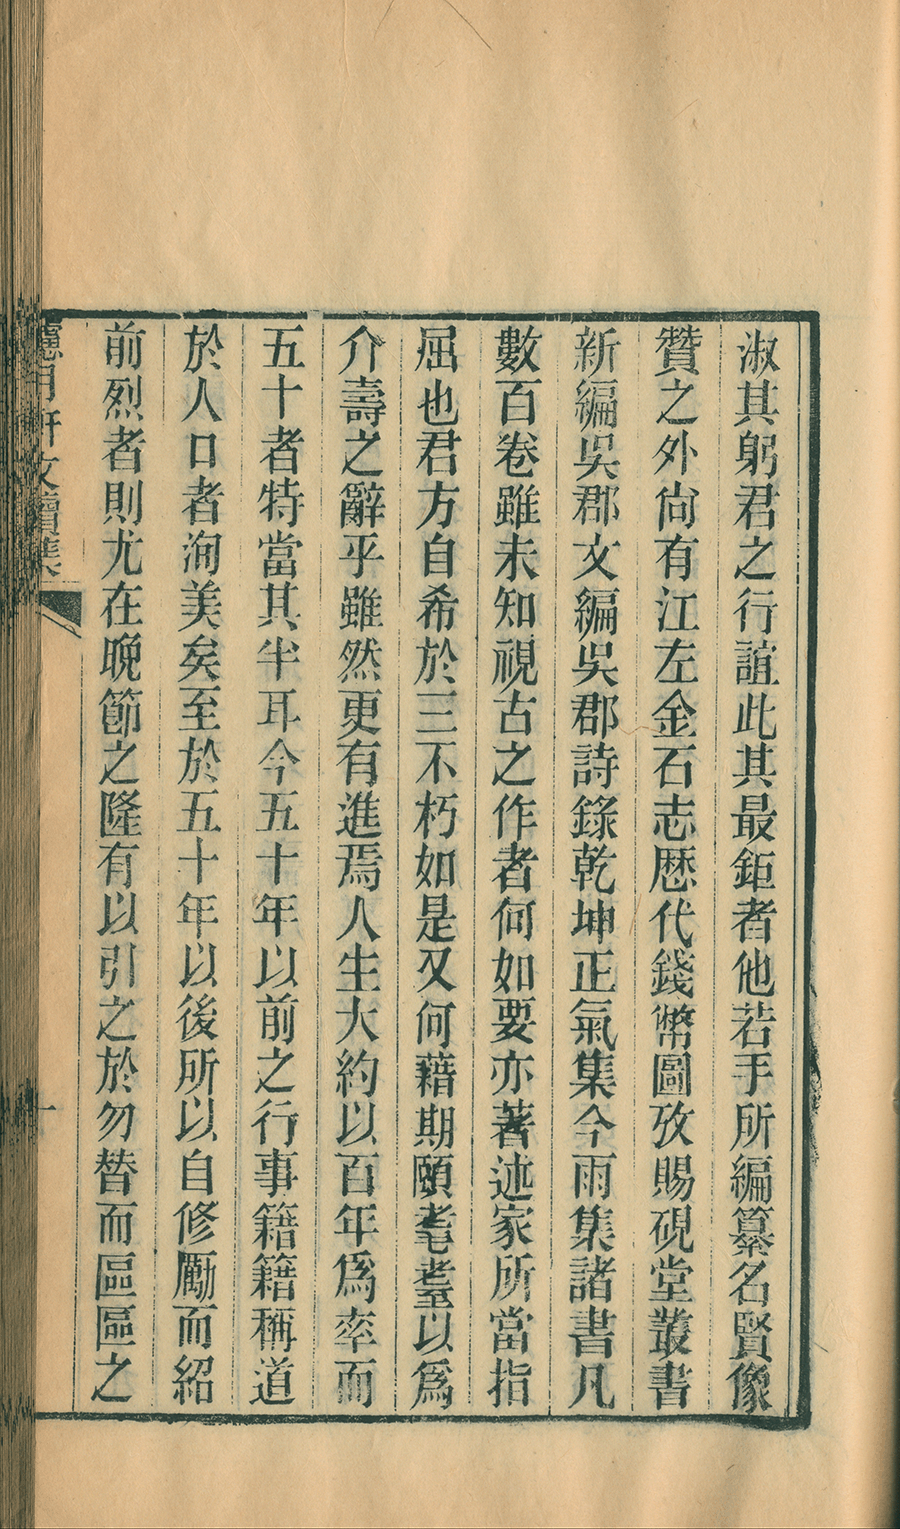 淑其躬君之行誼此其最鉅者他若手所編纂名賢像
贊之外尙有江左金石志歴代錢幣圖攷賜硯堂叢書
新編吳郡文編吳郡詩錄乾坤正氣集今雨集諸書凡
數百卷雖未知視古之作者何如要亦著述家所當指
屈也君方自希於三不朽如是又何藉期頤耄耋以爲
介壽之辭乎雖然更有進焉人生大約以百年爲率而
五十者特當其半耳今五十年以前之行事籍籍稱道
於人口者洵美矣至於五十年以後所以自修勵而紹
前烈者則尤在晚節之隆有以引之於勿替而區區之
月軒文續集